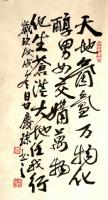 天地氤氲万物化
醇男女交媾萬物
化生蒼茫大地任我行